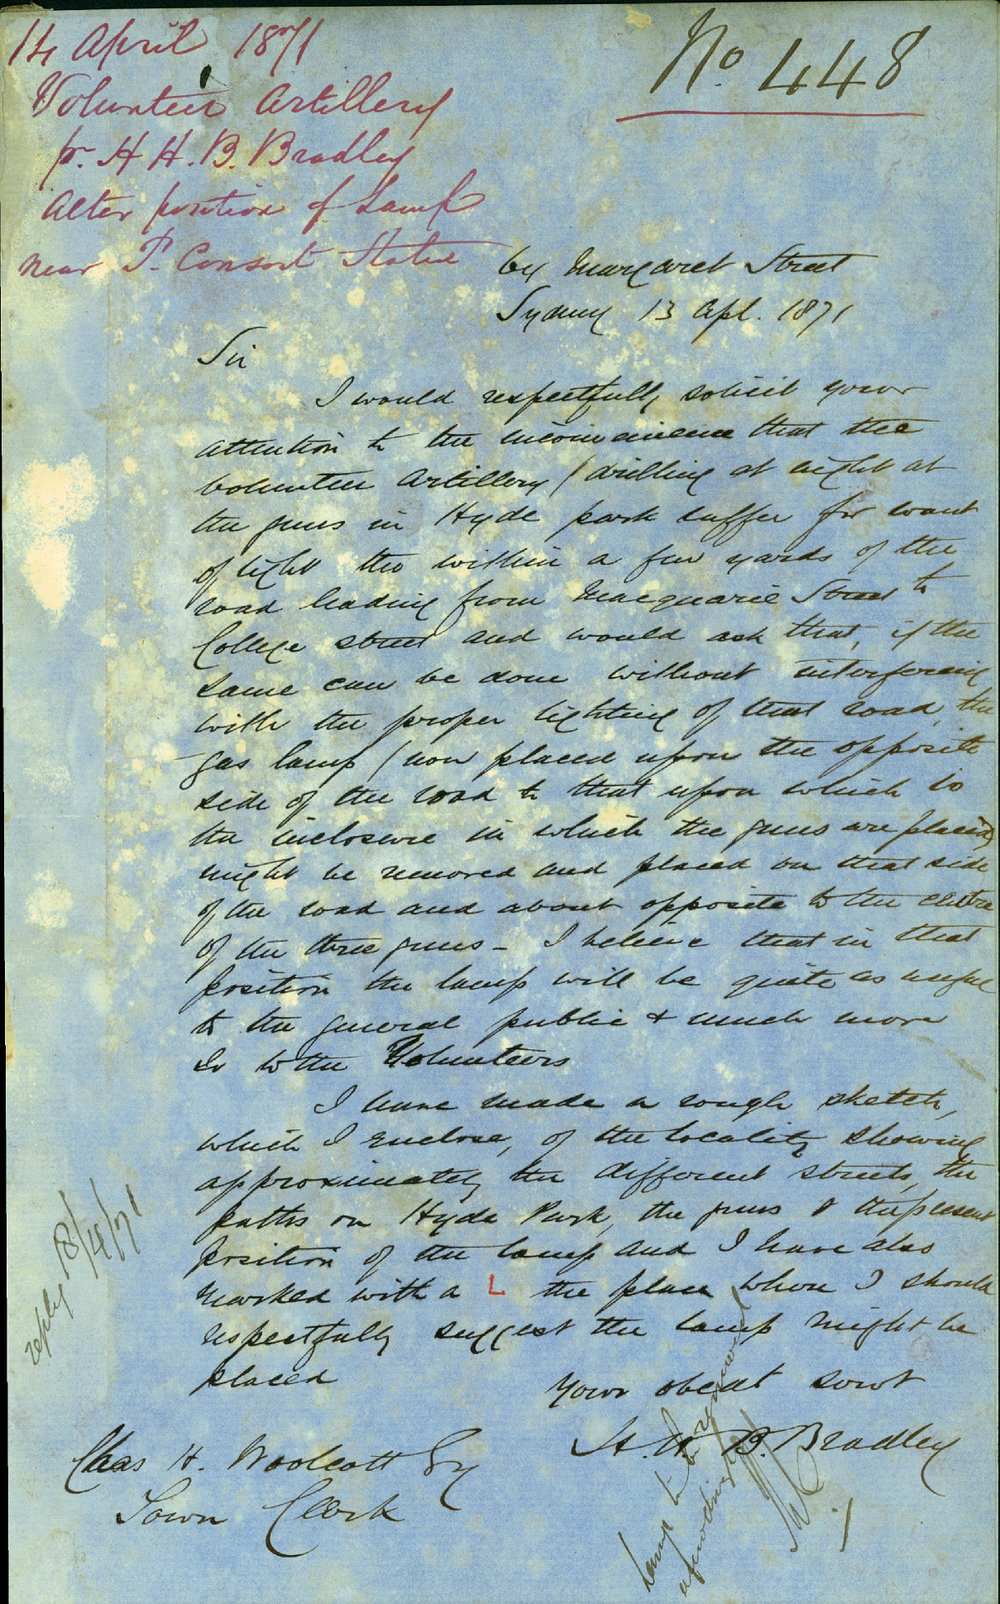 14 April 1871
Volunteer Artillery
pr. H H. B. Bradley
Alter position of Lamp
near P. Consort Statue
No 448
Margaret Street
Sydney 13 Apl. 1871
Sir
I would respectfully solicit your
attention to the inconvenience that the
Volunteer Artillery (drilling at night at
the guns in Hyde park suffer for want
of light tho within a few yards of the
road leading from Macquarie Street to
College street and would ask that, if the
same can be done without interfering
with the proper lighting of that road, the
gas lamp (now placed upon the opposite
side of the road to that upon which is
the inclosure in which the guns are placed)
might be removed and placed on that side
of the road and about opposite to the centre
of the three guns - I believe that in that
position the lamp will be quite as useful
to the general public & much more
so to the Volunteers
I have made a rough sketch,
which I enclose, of the locality showing
approximately the different streets, the
paths on Hyde Park, the guns & the present
position of the lamp and I have also
marked with a L the place where I should
respectfully suggest the lamp might be
placed
Your obedt servt
H. H. B. Bradley
Chas H. Woolcott Esq
Town Clerk
reply 18/4/71
Lamp to be removed
accordingly